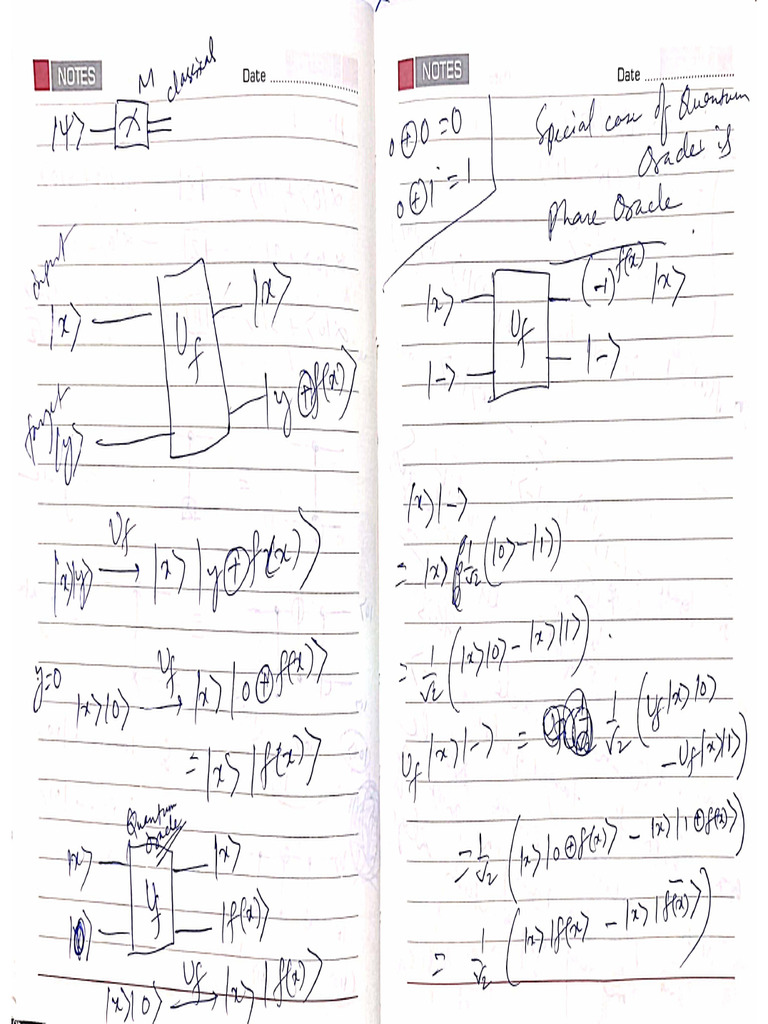 NOTES
Date
M
classical
|ψ⟩
input
|x⟩
|x⟩
U_f
target
|y⟩
|y ⊕ f(x)⟩
|x⟩|y⟩ —U_f→ |x⟩ |y ⊕ f(x)⟩
y=0
|x⟩|0⟩ —U_f→ |x⟩ |0 ⊕ f(x)⟩
= |x⟩ |f(x)⟩
Quantum
oracle
|x⟩
|x⟩
U_f
|0⟩
|f(x)⟩
|x⟩|0⟩ —U_f→ |x⟩ |f(x)⟩
NOTES
Date
0 ⊕ 0 = 0
0 ⊕ 1 = 1
Special case of Quantum
Oracles is
Phase Oracle
|x⟩
(-1)^{f(x)} |x⟩
U_f
|-⟩
|-⟩
|x⟩|-⟩
= |x⟩ 1/√2 (|0⟩ - |1⟩)
= 1/√2 (|x⟩|0⟩ - |x⟩|1⟩).
U_f |x⟩|-⟩ = 1/√2 (U_f |x⟩|0⟩
- U_f |x⟩|1⟩)
= 1/√2 (|x⟩|0 ⊕ f(x)⟩ - |x⟩|1 ⊕ f(x)⟩)
= 1/√2 (|x⟩|f(x)⟩ - |x⟩|f̅(x)⟩)